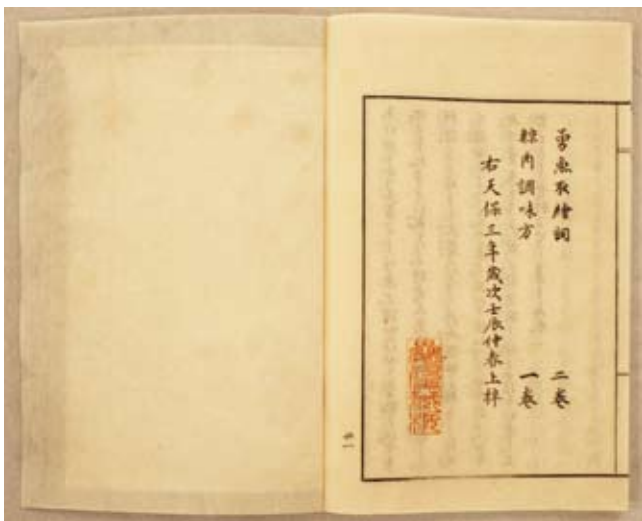 勇魚取繪詞 二卷
鯨肉調味方 一卷
右天保三年歲次壬辰仲春上梓